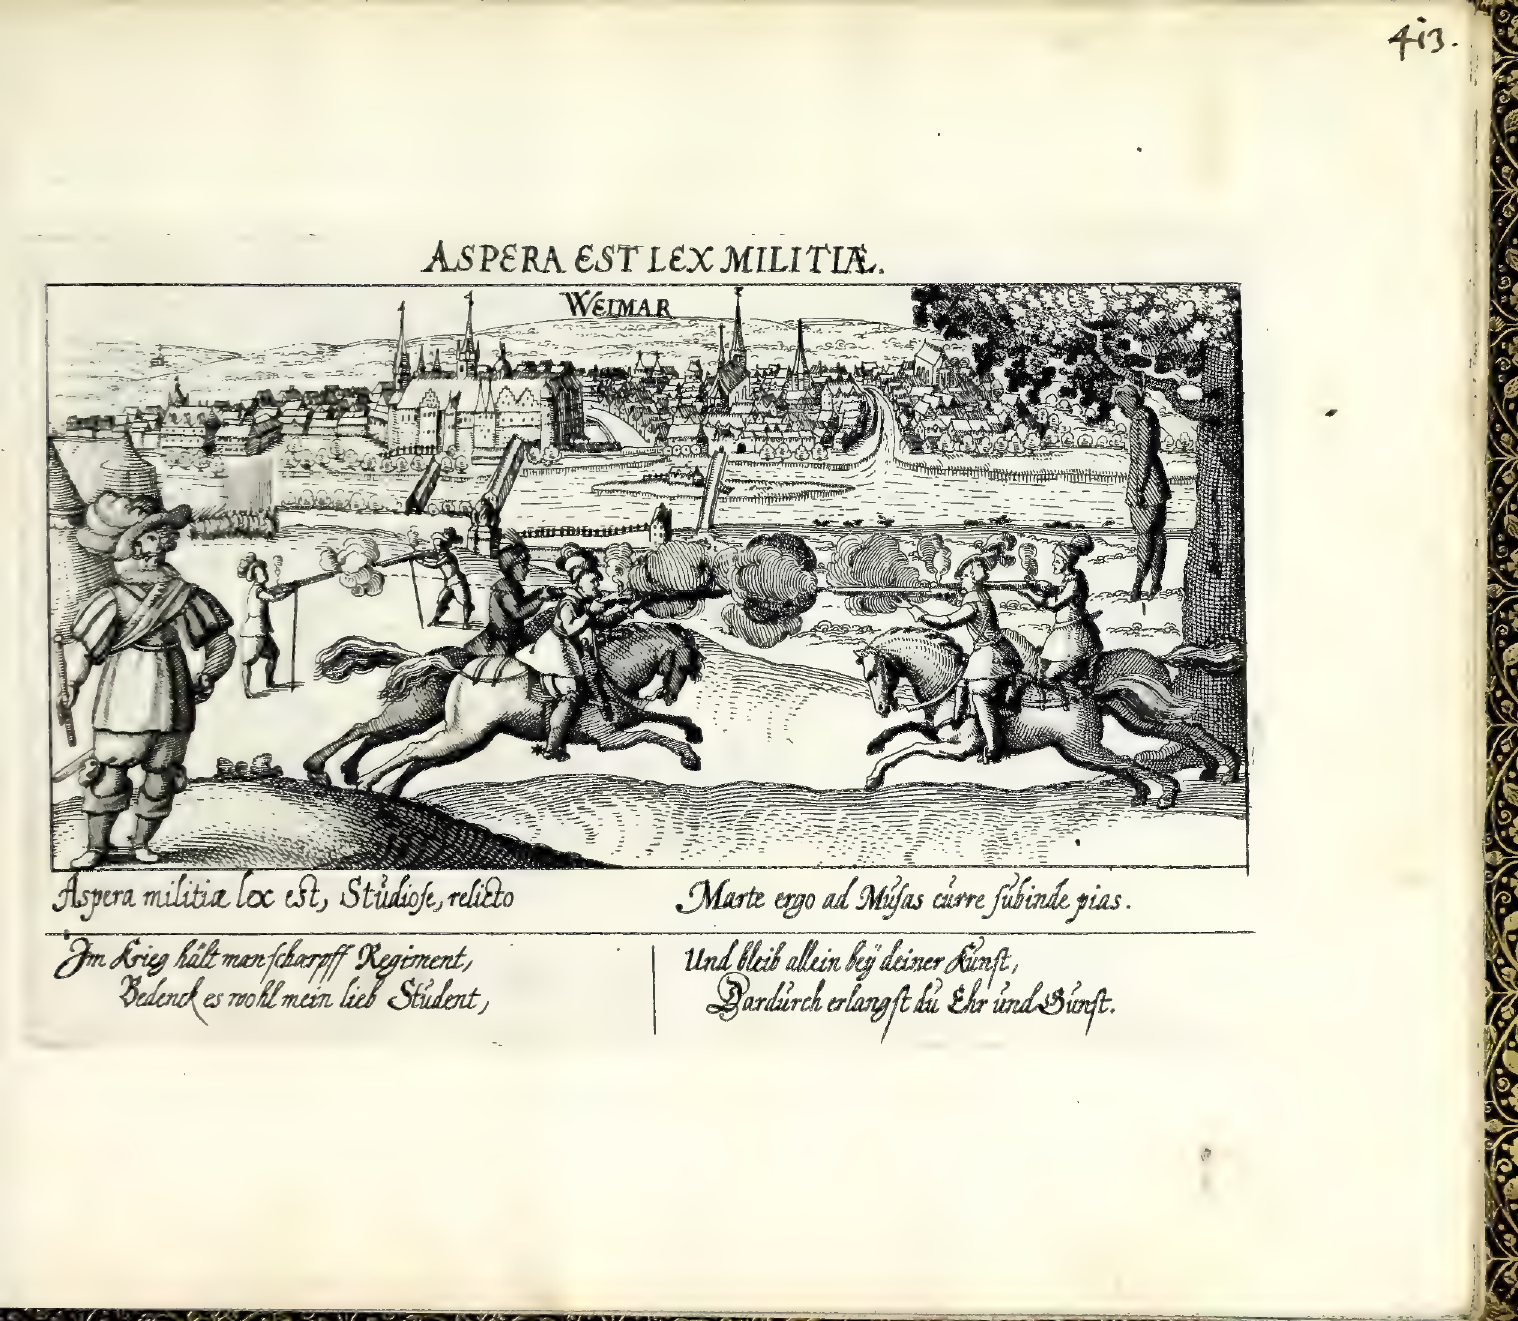 4i3.
ASPERA EST LEX MILITIÆ.
WEIMAR
Aspera militiæ lex est, Stúdiose, relicto
Marte ergo ad Múſas cúrre ſúbinde pias.
Im Krieg hält man ſcharpff Regiment,
Bedenck es wohl mein lieb Stúdent,
Und bleib allein beÿ deiner Kúnſt,
Dardúrch erlangſt dú Ehr únd Gúnſt.